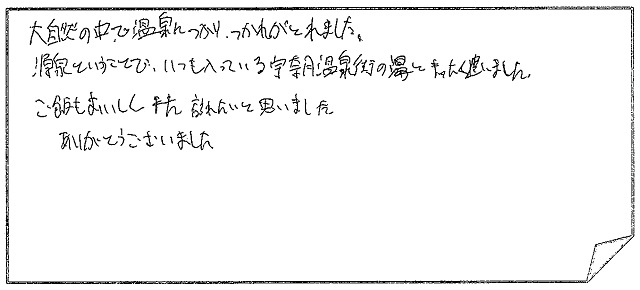 大自然の中で温泉につかり、つかれがとれました。
源泉ということで、いつも入っている宇奈月温泉街の湯とまったく違いました。
ご飯もおいしく また 訪れたいと思いました
ありがとうございました